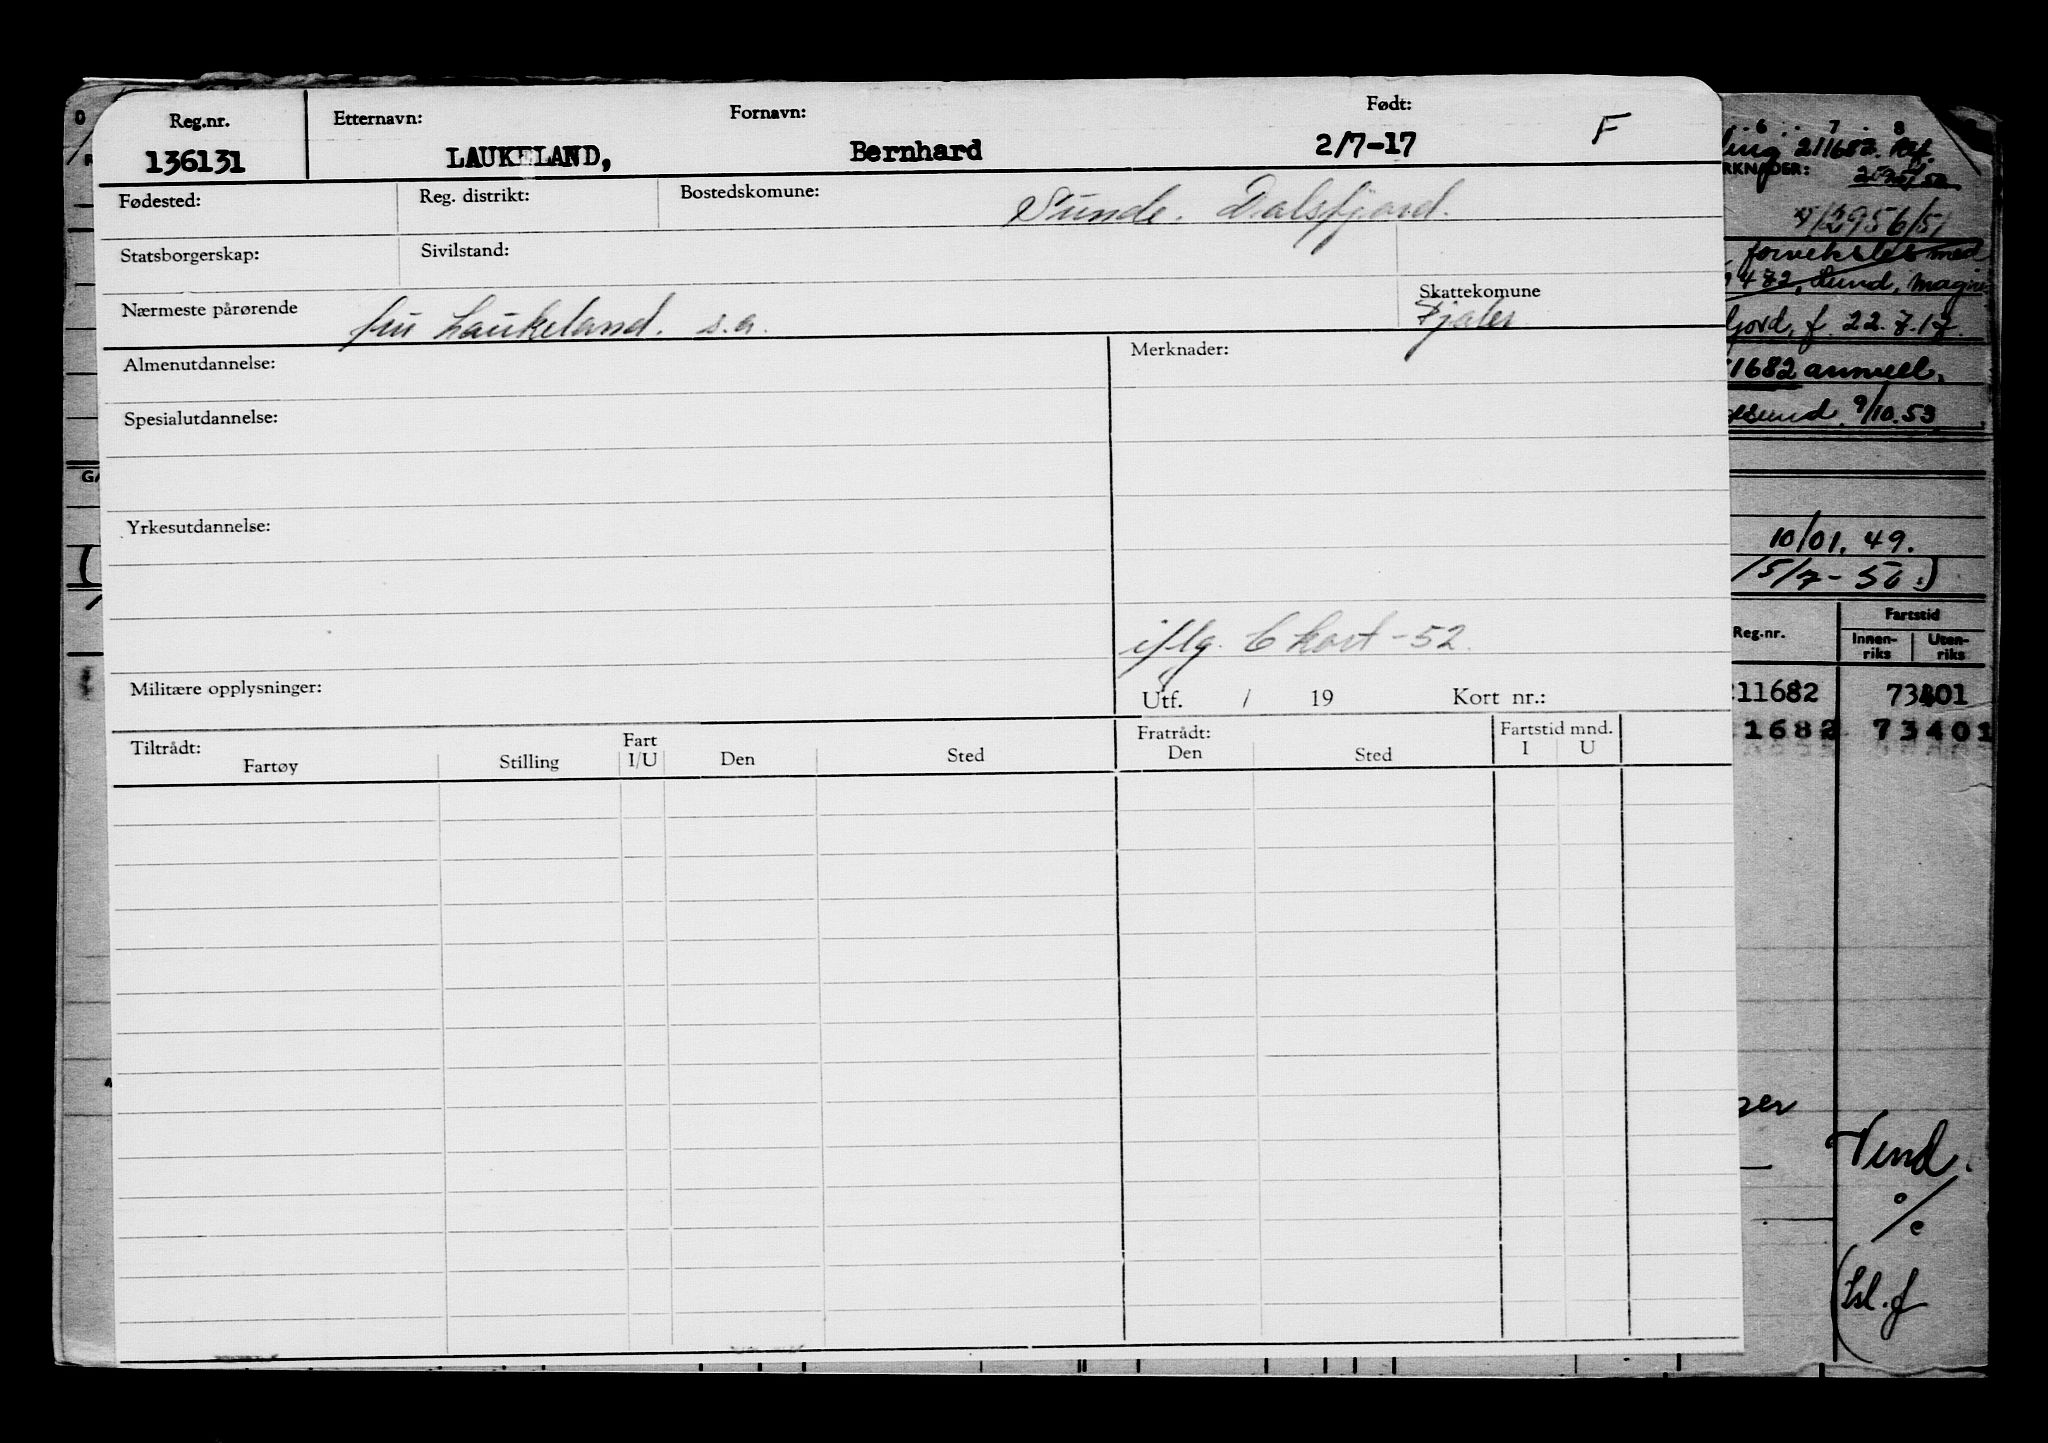 Reg.nr. Etternavn: Fornavn: Født: F
136131 LAUKELAND, Bernhard 2/7-17
Fødested: Reg. distrikt: Bostedskomune: Sunde. Dalsfjord.
Statsborgerskap: Sivilstand:
Nærmeste pårørende fru Laukeland. s.a. Skattekomune Fjaler
Almenutdannelse: Merknader:
Spesialutdannelse:
Yrkesutdannelse:
iflg. C kort -52.
Militære opplysninger: Utf. / 19 Kort nr.:
Tiltrådt: Fartøy Stilling Fart I/U Den Sted Fratrådt: Den Sted Fartstid mnd. I U
6 7 8
211682
RKNADER:
2956/51
forvekslet med
472, Lund, Magn
fjord, f. 22.7.17.
1682 annull.
sund 9/10.53
10/01. 49.
15/7-50.)
Reg.nr. Fartstid
Innen-riks Uten-riks
11682 73401
1682 73401
Vend.
%